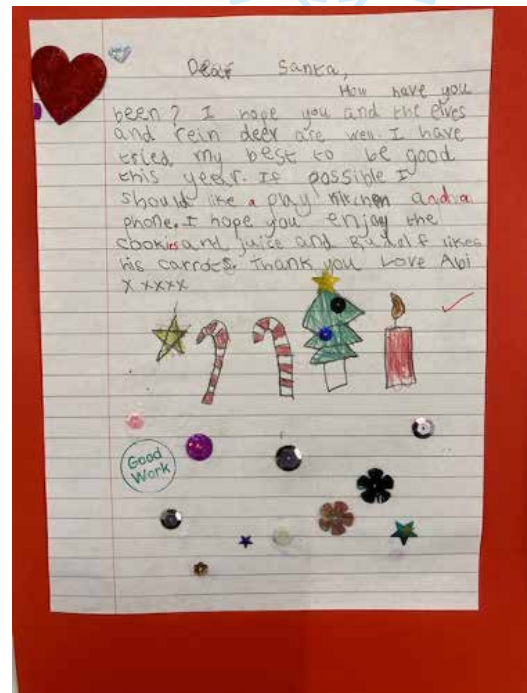 Dear Santa,
How have you
been? I hope you and the elves
and rein deer are well. I have
tried my best to be good
this year. If possible I
should like a play kitchen and a
phone. I hope you enjoy the
cookies and juice and Rudolf likes
his carrots. Thank you Love Abi
x xxxx
Good
Work